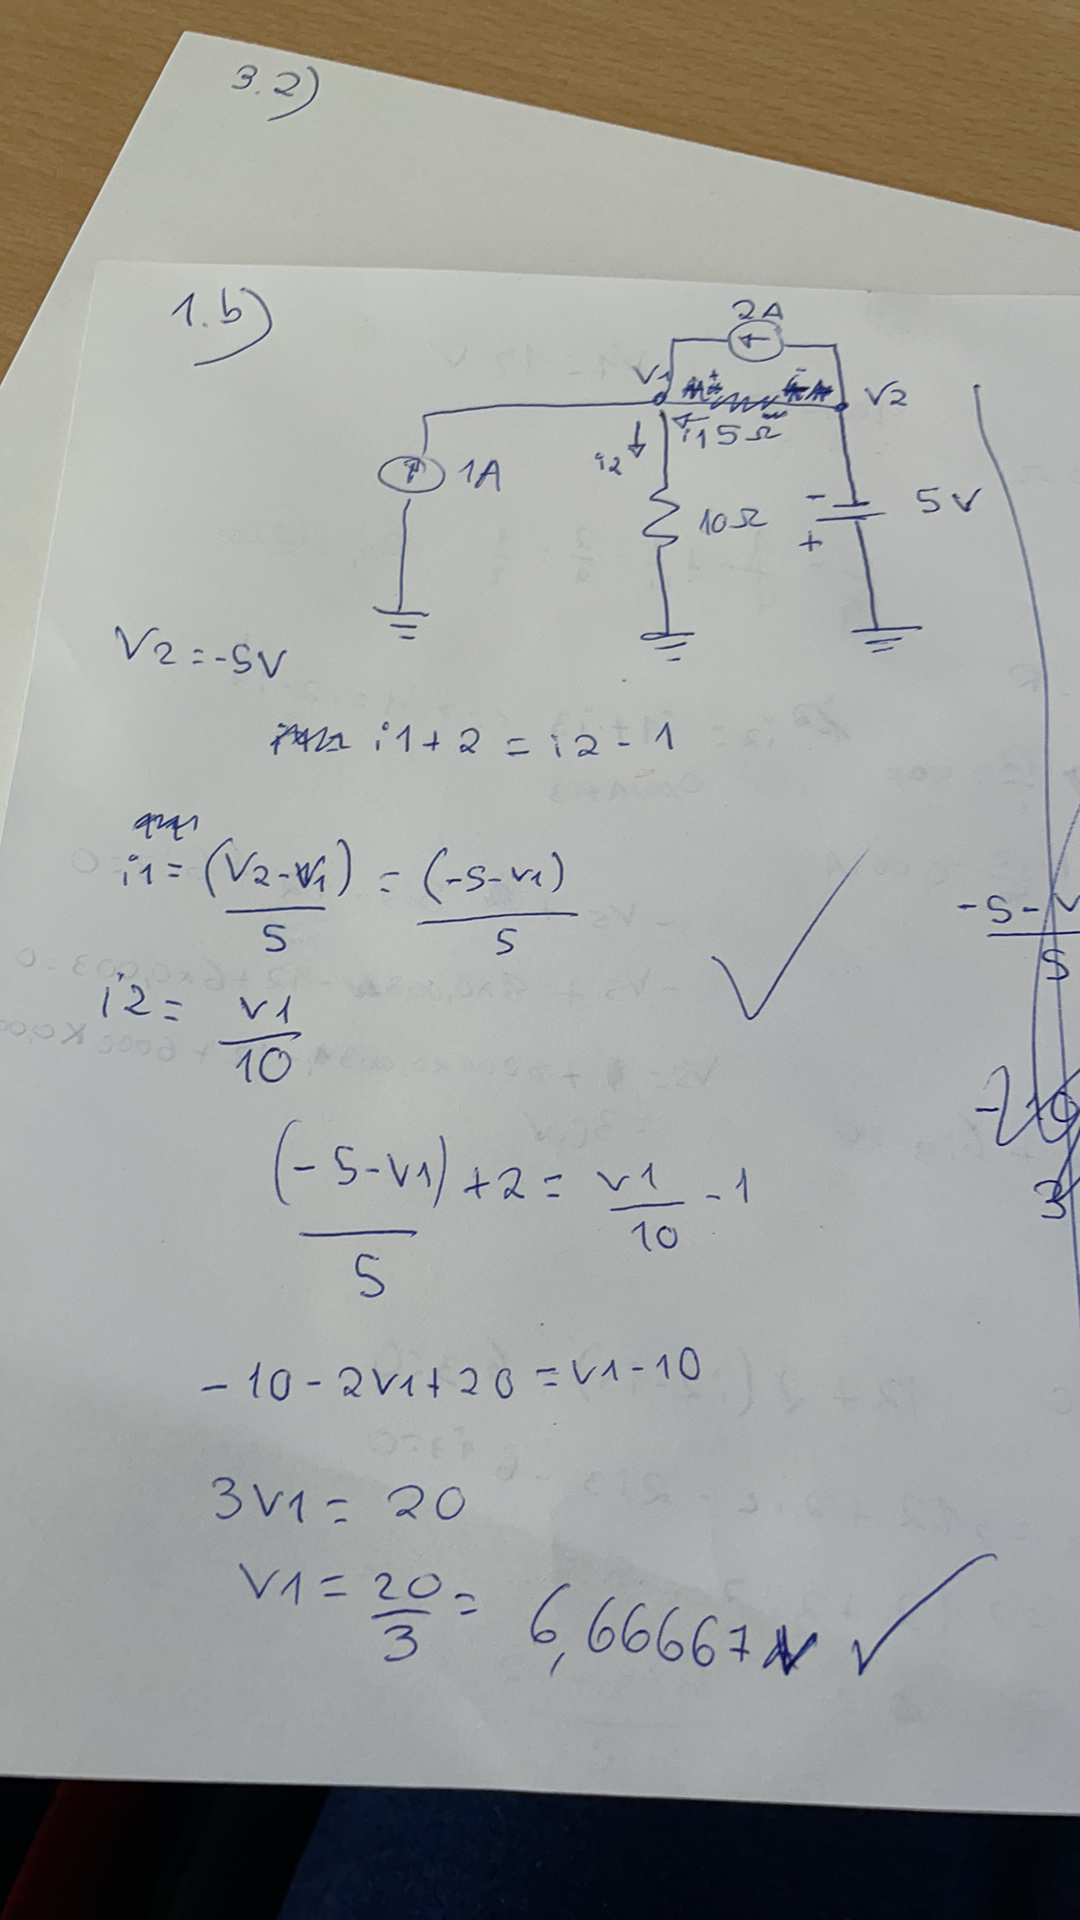 3.2)
1.b)
2A
V1
V2
i1 5Ω
i2
1A
10Ω
-
+
5V
V2=-5V
i1+2 = i2-1
i1= (V2-V1)/5 = (-5-V1)/5
i2= V1/10
(-5-V1)/5 +2= V1/10 -1
-10-2V1+20=V1-10
3V1= 20
V1= 20/3 = 6,66667V